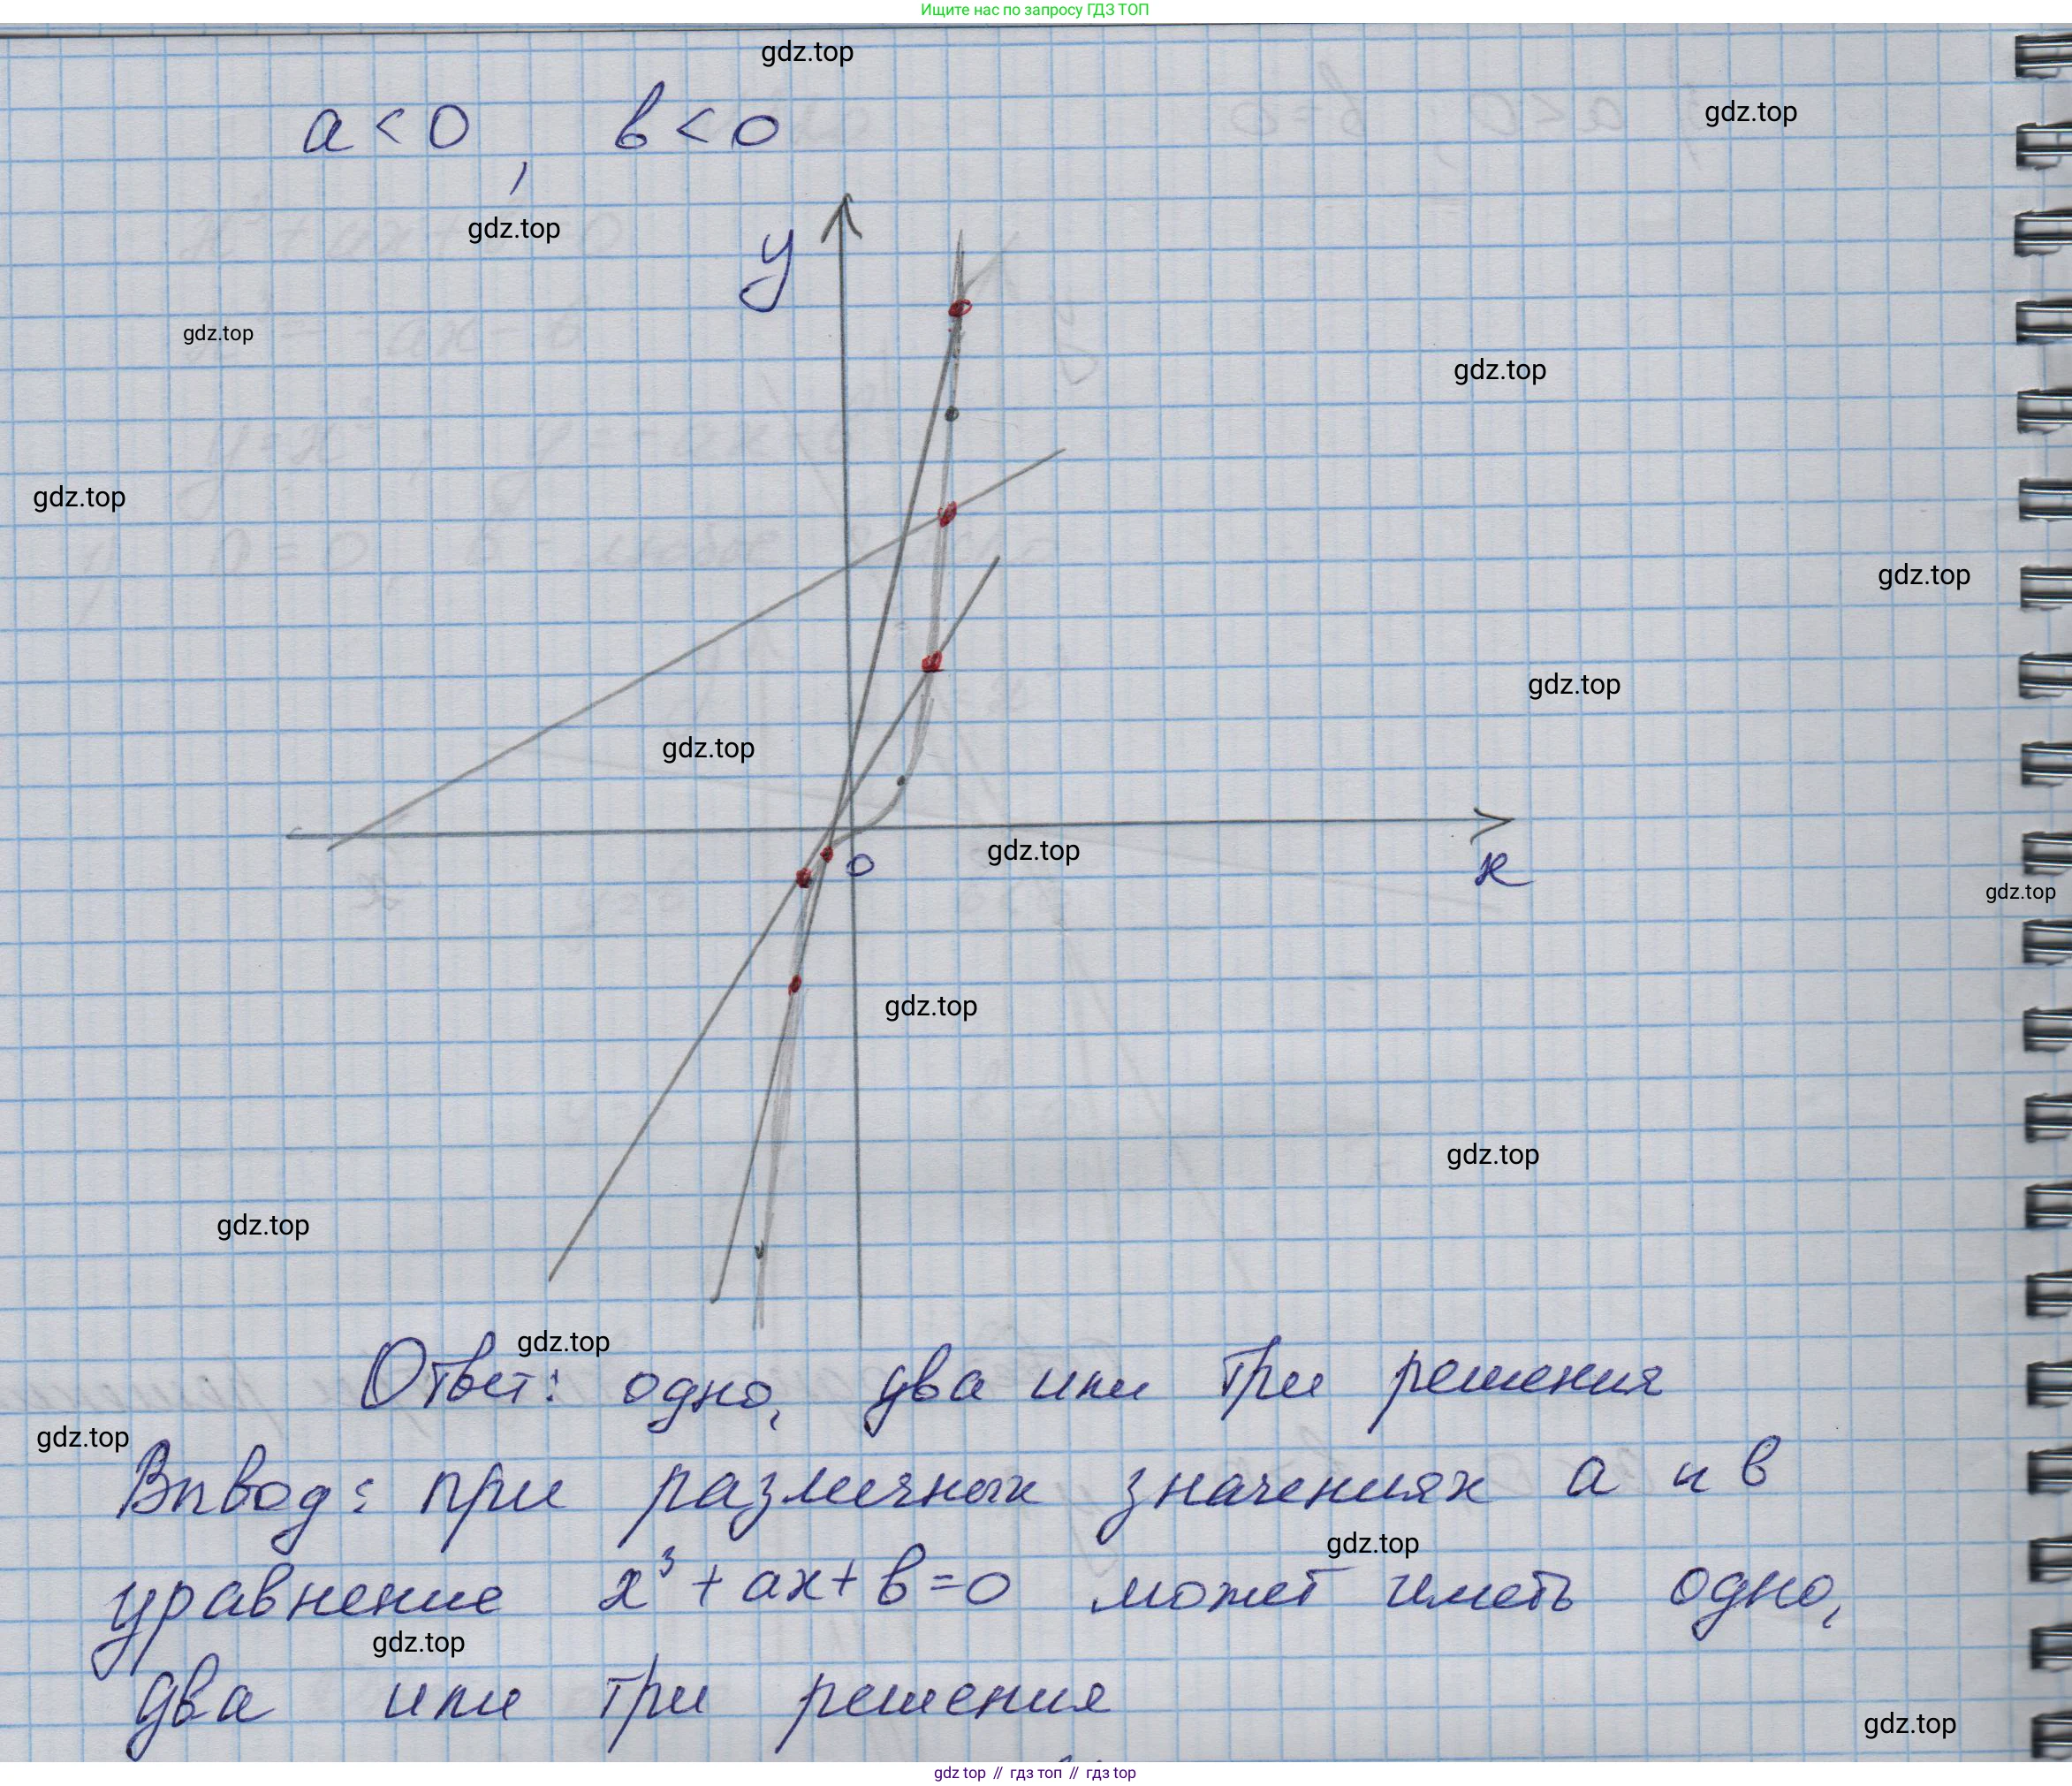 Ищите нас по запросу ГДЗ ТОП
gdz.top
gdz.top
a < 0, b < 0
gdz.top
y
gdz.top
gdz.top
gdz.top
gdz.top
gdz.top
gdz.top
0
gdz.top
x
gdz.top
gdz.top
gdz.top
gdz.top
gdz.top
Ответ: одно, два или три решения
gdz.top
Вывод: при различных значениях a и b
gdz.top
уравнение x³ + ax + b = 0 может иметь одно,
gdz.top
два или три решения
gdz.top
gdz top // гдз топ // gdz top